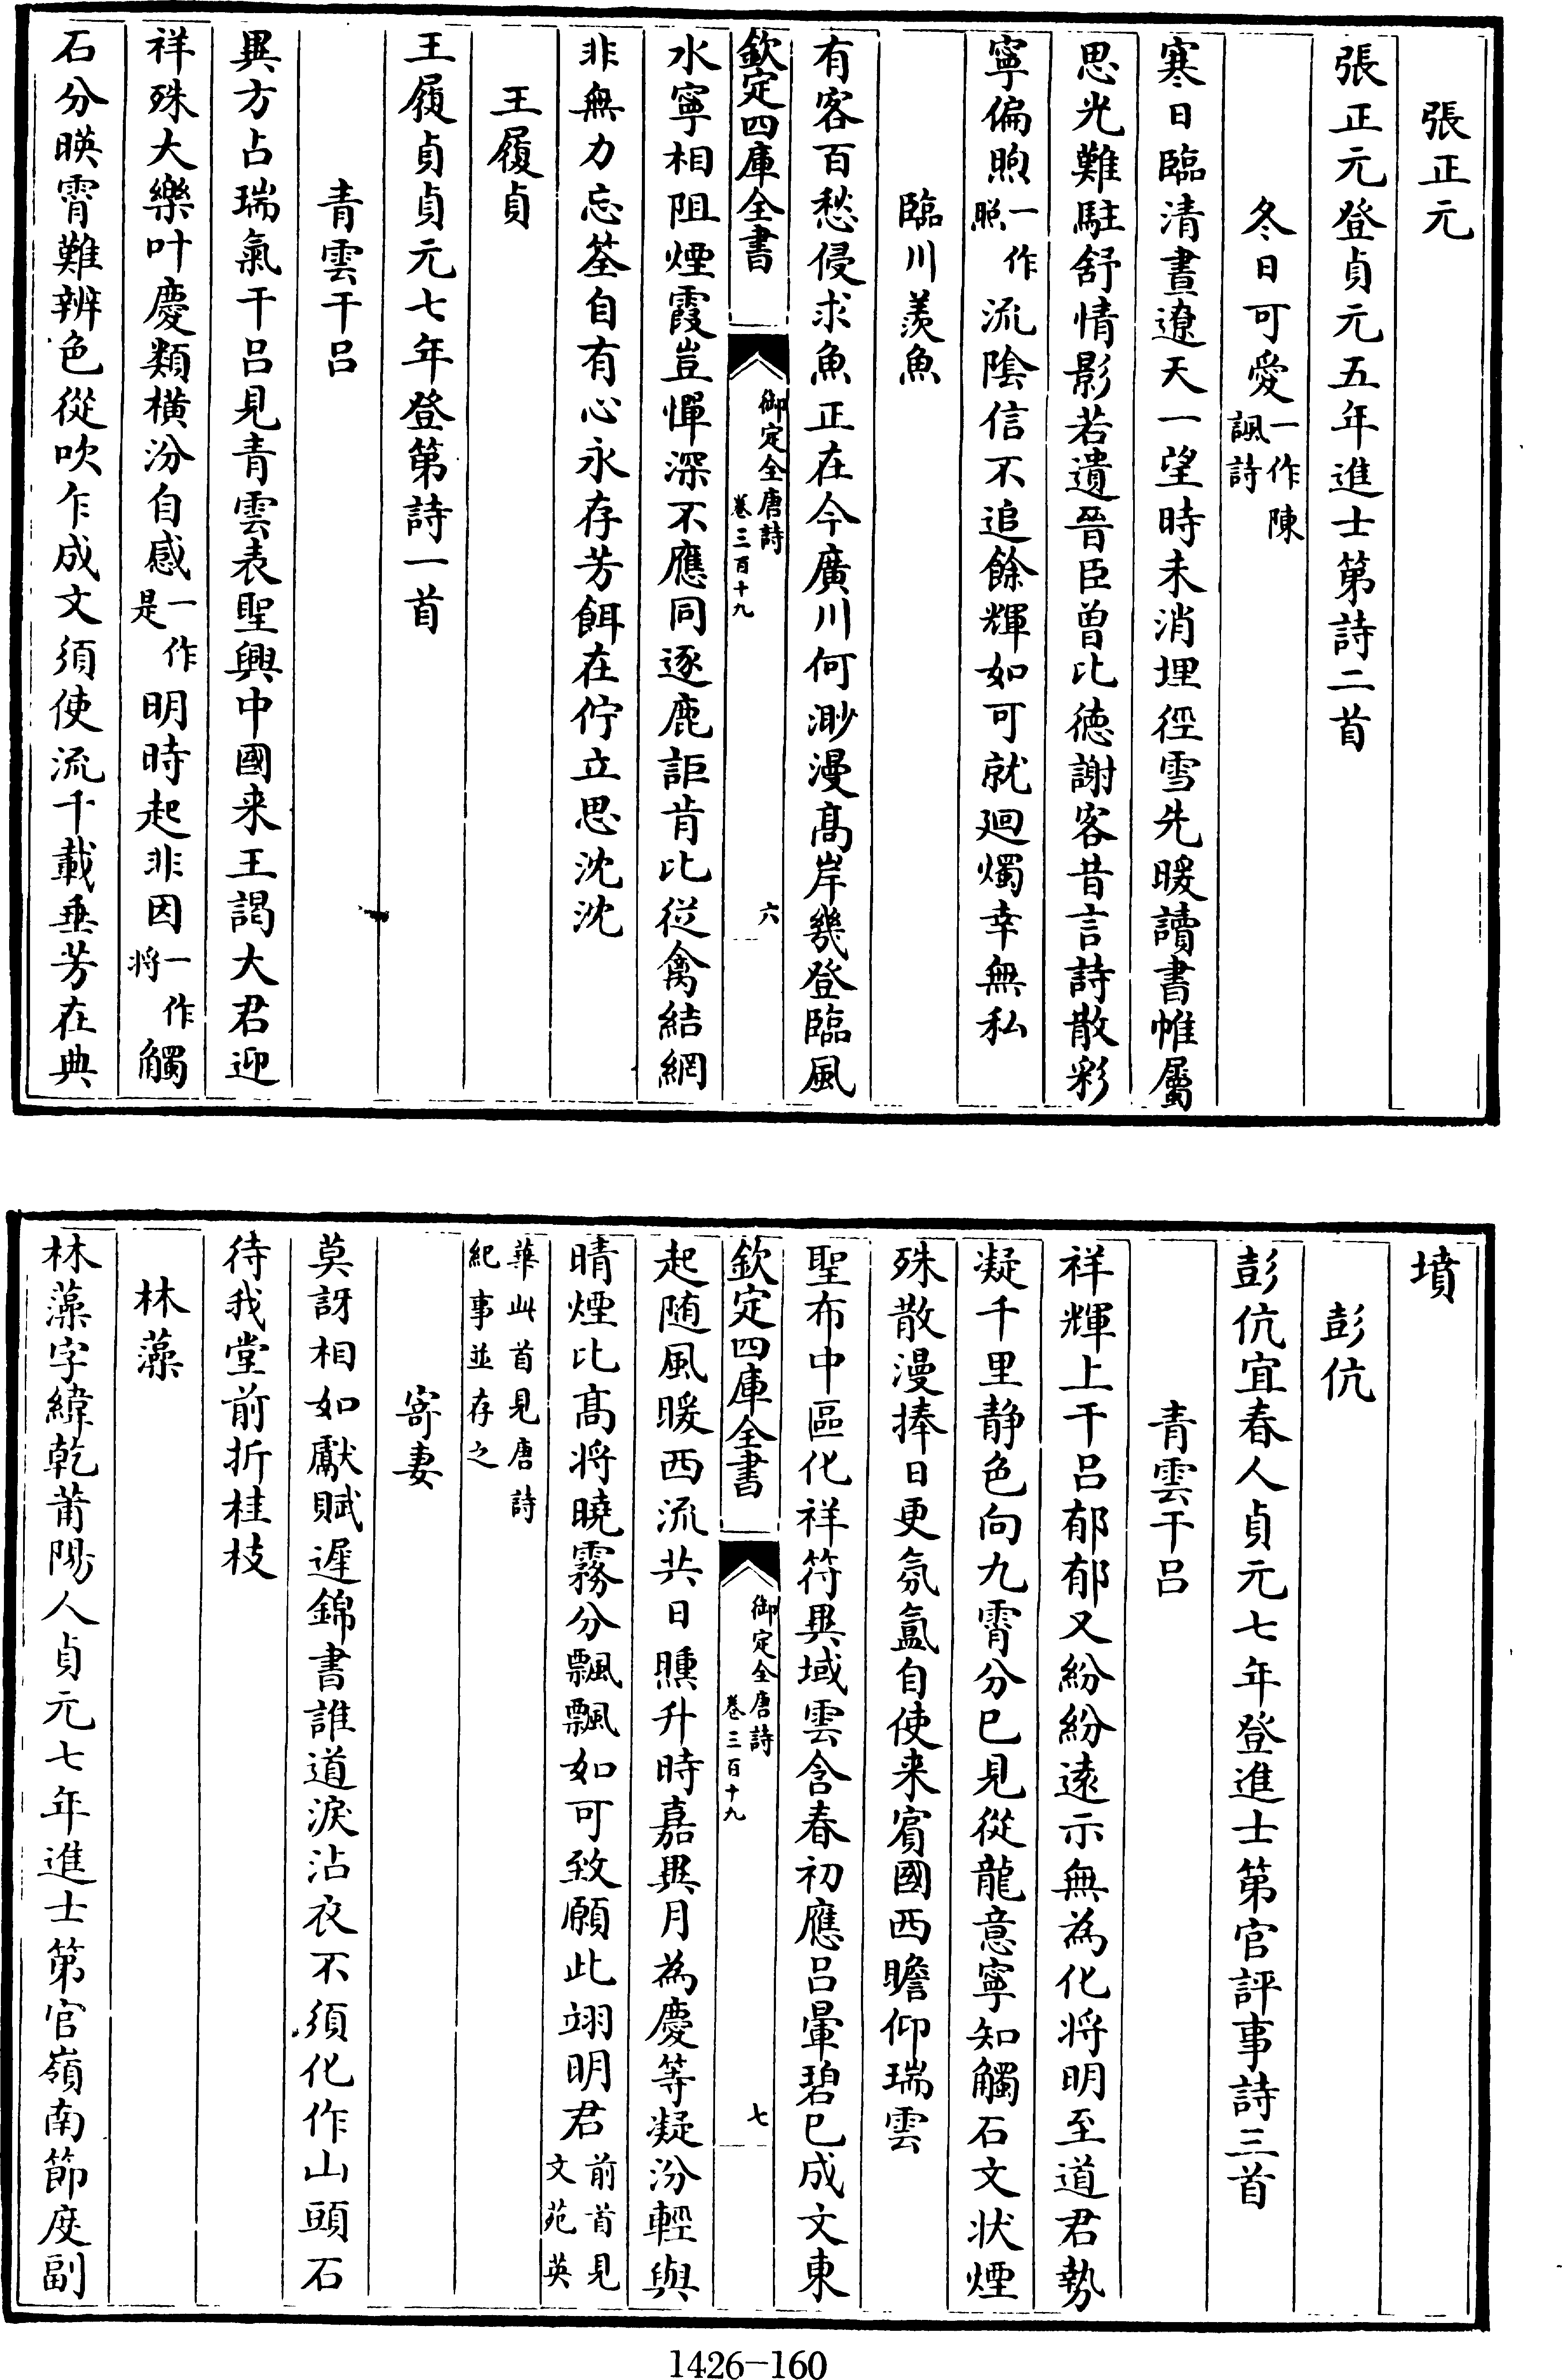 張正元
張正元登貞元五年進士第詩二首
冬日可愛一作陳諷詩
寒日臨清晝遼天一望時未消埋徑雪先暖讀書帷屬
思光難駐舒情影若遺晉臣曾比德謝客昔言詩散彩
寧偏煦一作照流陰信不追餘輝如可就廻燭幸無私
臨川羨魚
有客百愁侵求魚正在今廣川何渺漫髙岸幾登臨風
欽定四庫全書
御定全唐詩
卷三百十九
六
水寧相阻煙霞豈憚深不應同逐鹿詎肯比從禽結網
非無力忘筌自有心永存芳餌在佇立思沈沈
王履貞
王履貞貞元七年登第詩一首
青雲干呂
異方占瑞氣干呂見青雲表聖興中國来王謁大君迎
祥殊大樂叶慶類横汾自感一作是明時起非因一作将觸
石分暎霄難辨色從吹乍成文須使流千載垂芳在典
墳
彭伉
彭伉宜春人貞元七年登進士第官評事詩三首
青雲干呂
祥輝上干呂郁郁又紛紛逺示無為化将明至道君勢
凝千里静色向九霄分已見從龍意寧知觸石文状煙
殊散漫捧日更氛氲自使来賔國西瞻仰瑞雲
聖布中區化祥符異域雲含春初應呂暈碧已成文東
欽定四庫全書
御定全唐詩
卷三百十九
七
起随風暖西流共日曛升時嘉異月為慶等凝汾輕與
晴煙比髙将曉霧分飄飄如可致願此翊明君前首見文苑英
華此首見唐詩紀事並存之
寄妻
莫訝相如獻賦遲錦書誰道淚沾衣不須化作山頭石
待我堂前折桂枝
林藻
林藻字緯乾莆陽人貞元七年進士第官嶺南節度副
1426-160